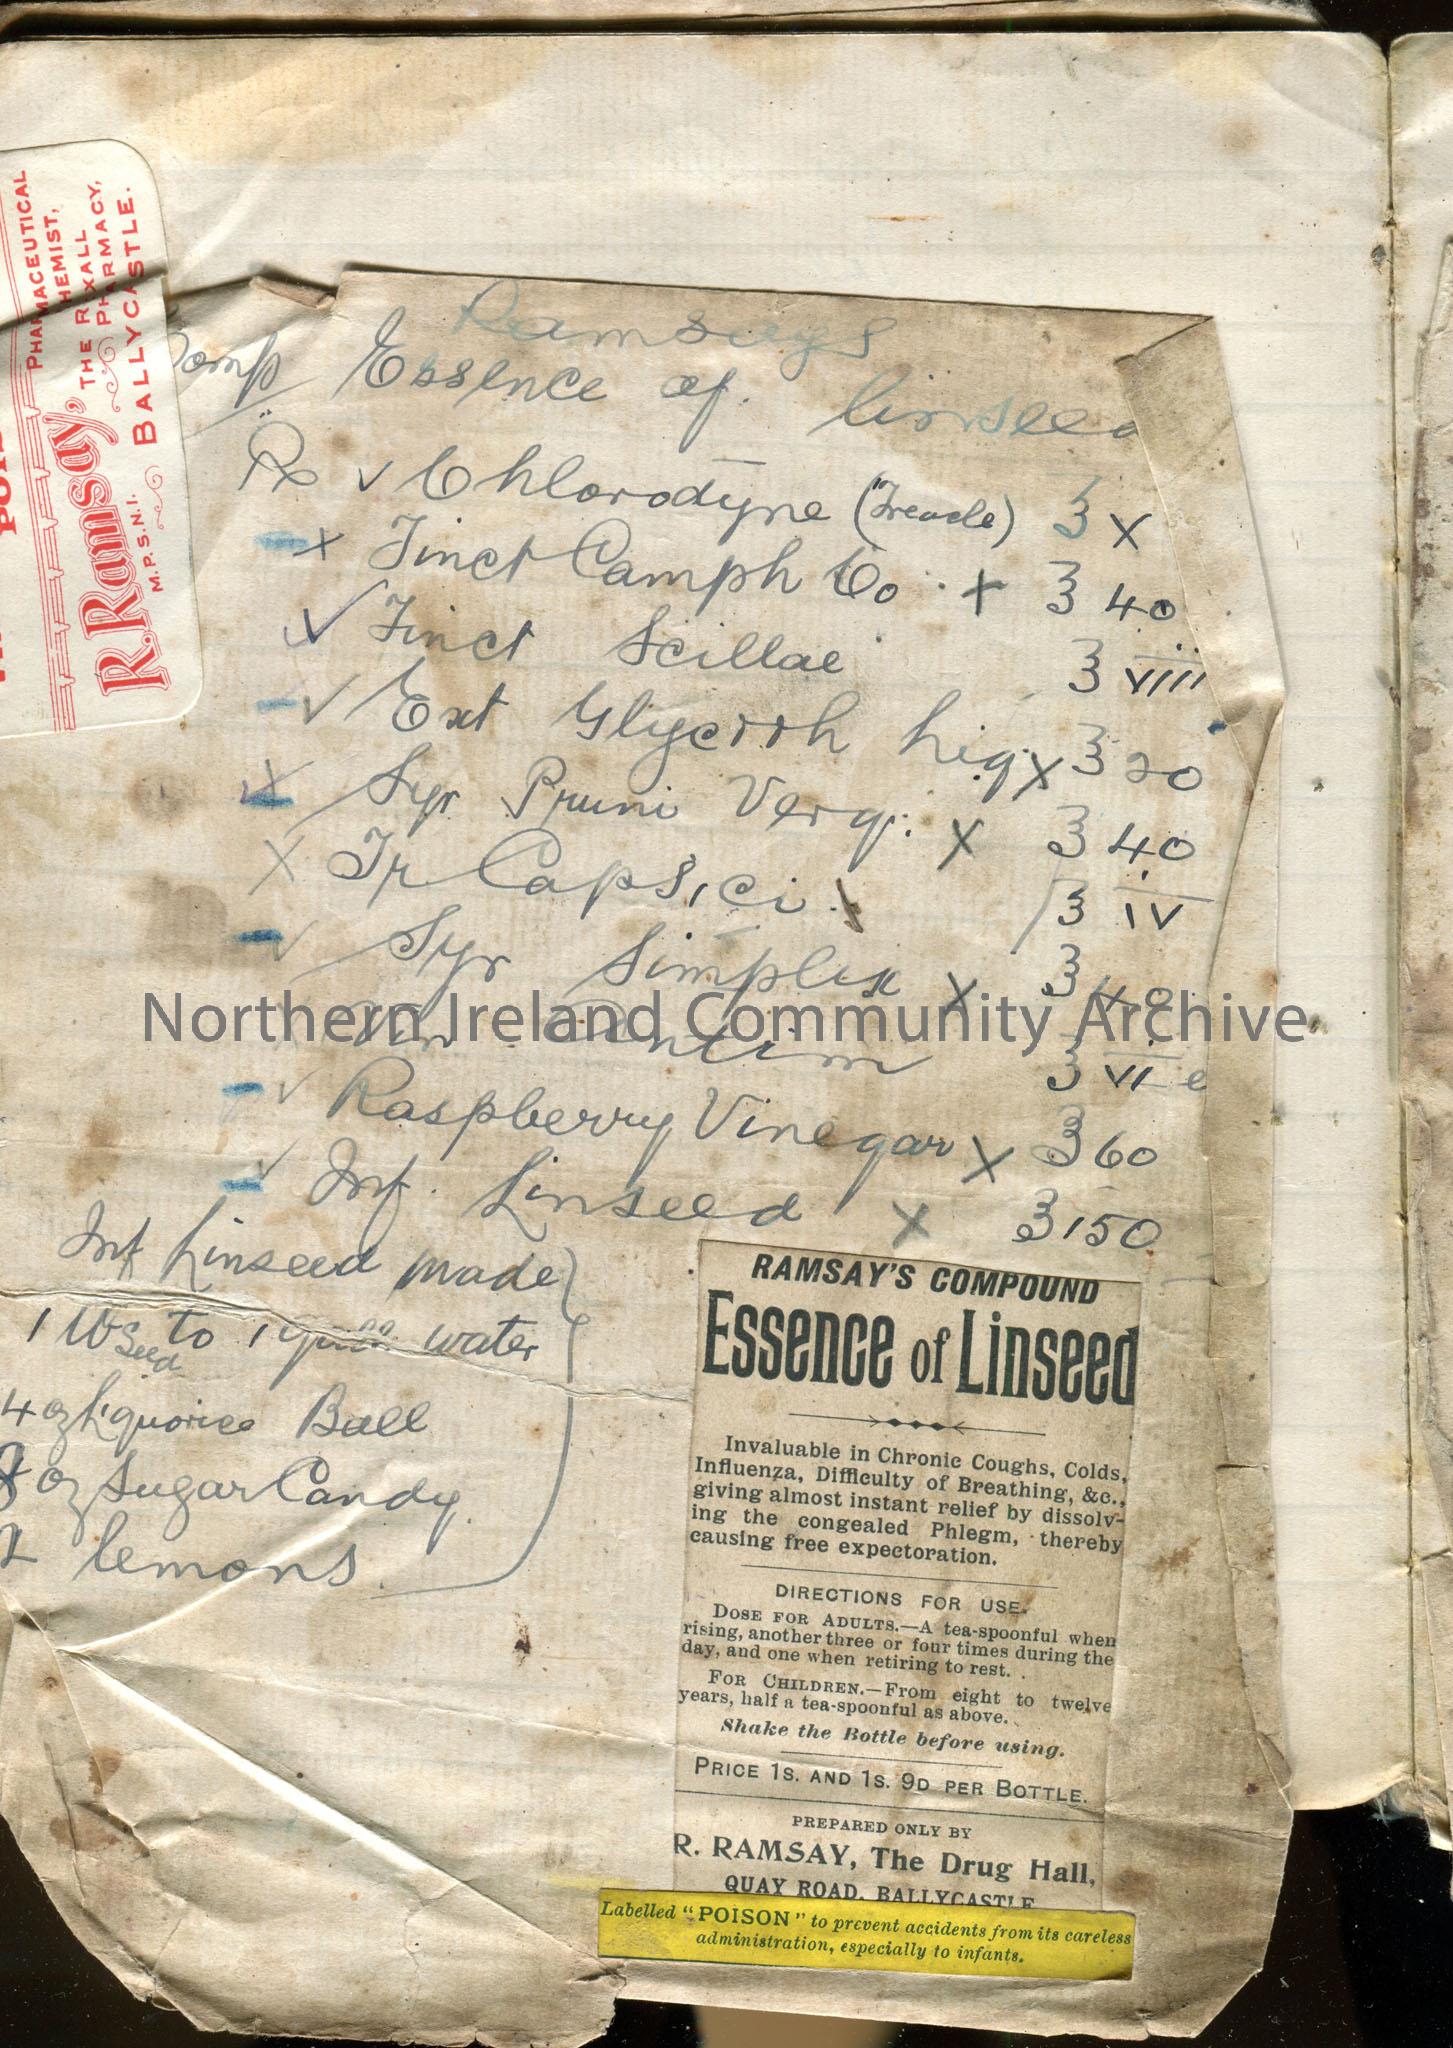 PHARMACEUTICAL
CHEMIST,
THE REXALL
PHARMACY,
BALLYCASTLE.
R. Ramsay,
M.P.S.N.I.
Ramsays
Comp Essence of linseed
Rx ✓ Chlorodyne (Treacle) ʒ x
x Tinct Camph Co. x ʒ 40
✓ Tinct Scillae ʒ viii
✓ Ext Glycerrh Liq x ʒ 20
x Syr Pruni Verg: x ʒ 40
x Tr Capsici ʒ iv
✓ Syr Simplex x ʒ 40
Vin Antim ʒ vi
✓ Raspberry Vinegar x ʒ 60
✓ Inf. Linseed x ʒ 150
Inf Linseed made
1 lb seed to 1 gall water
4 oz Liquorice Ball
8 oz Sugar Candy
2 lemons.
RAMSAY'S COMPOUND
Essence of Linseed
Invaluable in Chronic Coughs, Colds,
Influenza, Difficulty of Breathing, &c.,
giving almost instant relief by dissolv-
ing the congealed Phlegm, thereby
causing free expectoration.
DIRECTIONS FOR USE.
DOSE FOR ADULTS.—A tea-spoonful when
rising, another three or four times during the
day, and one when retiring to rest.
FOR CHILDREN.—From eight to twelve
years, half a tea-spoonful as above.
Shake the Bottle before using.
PRICE 1S. AND 1S. 9D PER BOTTLE.
PREPARED ONLY BY
R. RAMSAY, The Drug Hall,
QUAY ROAD, BALLYCASTLE
Labelled "POISON" to prevent accidents from its careless
administration, especially to infants.
Northern Ireland Community Archive